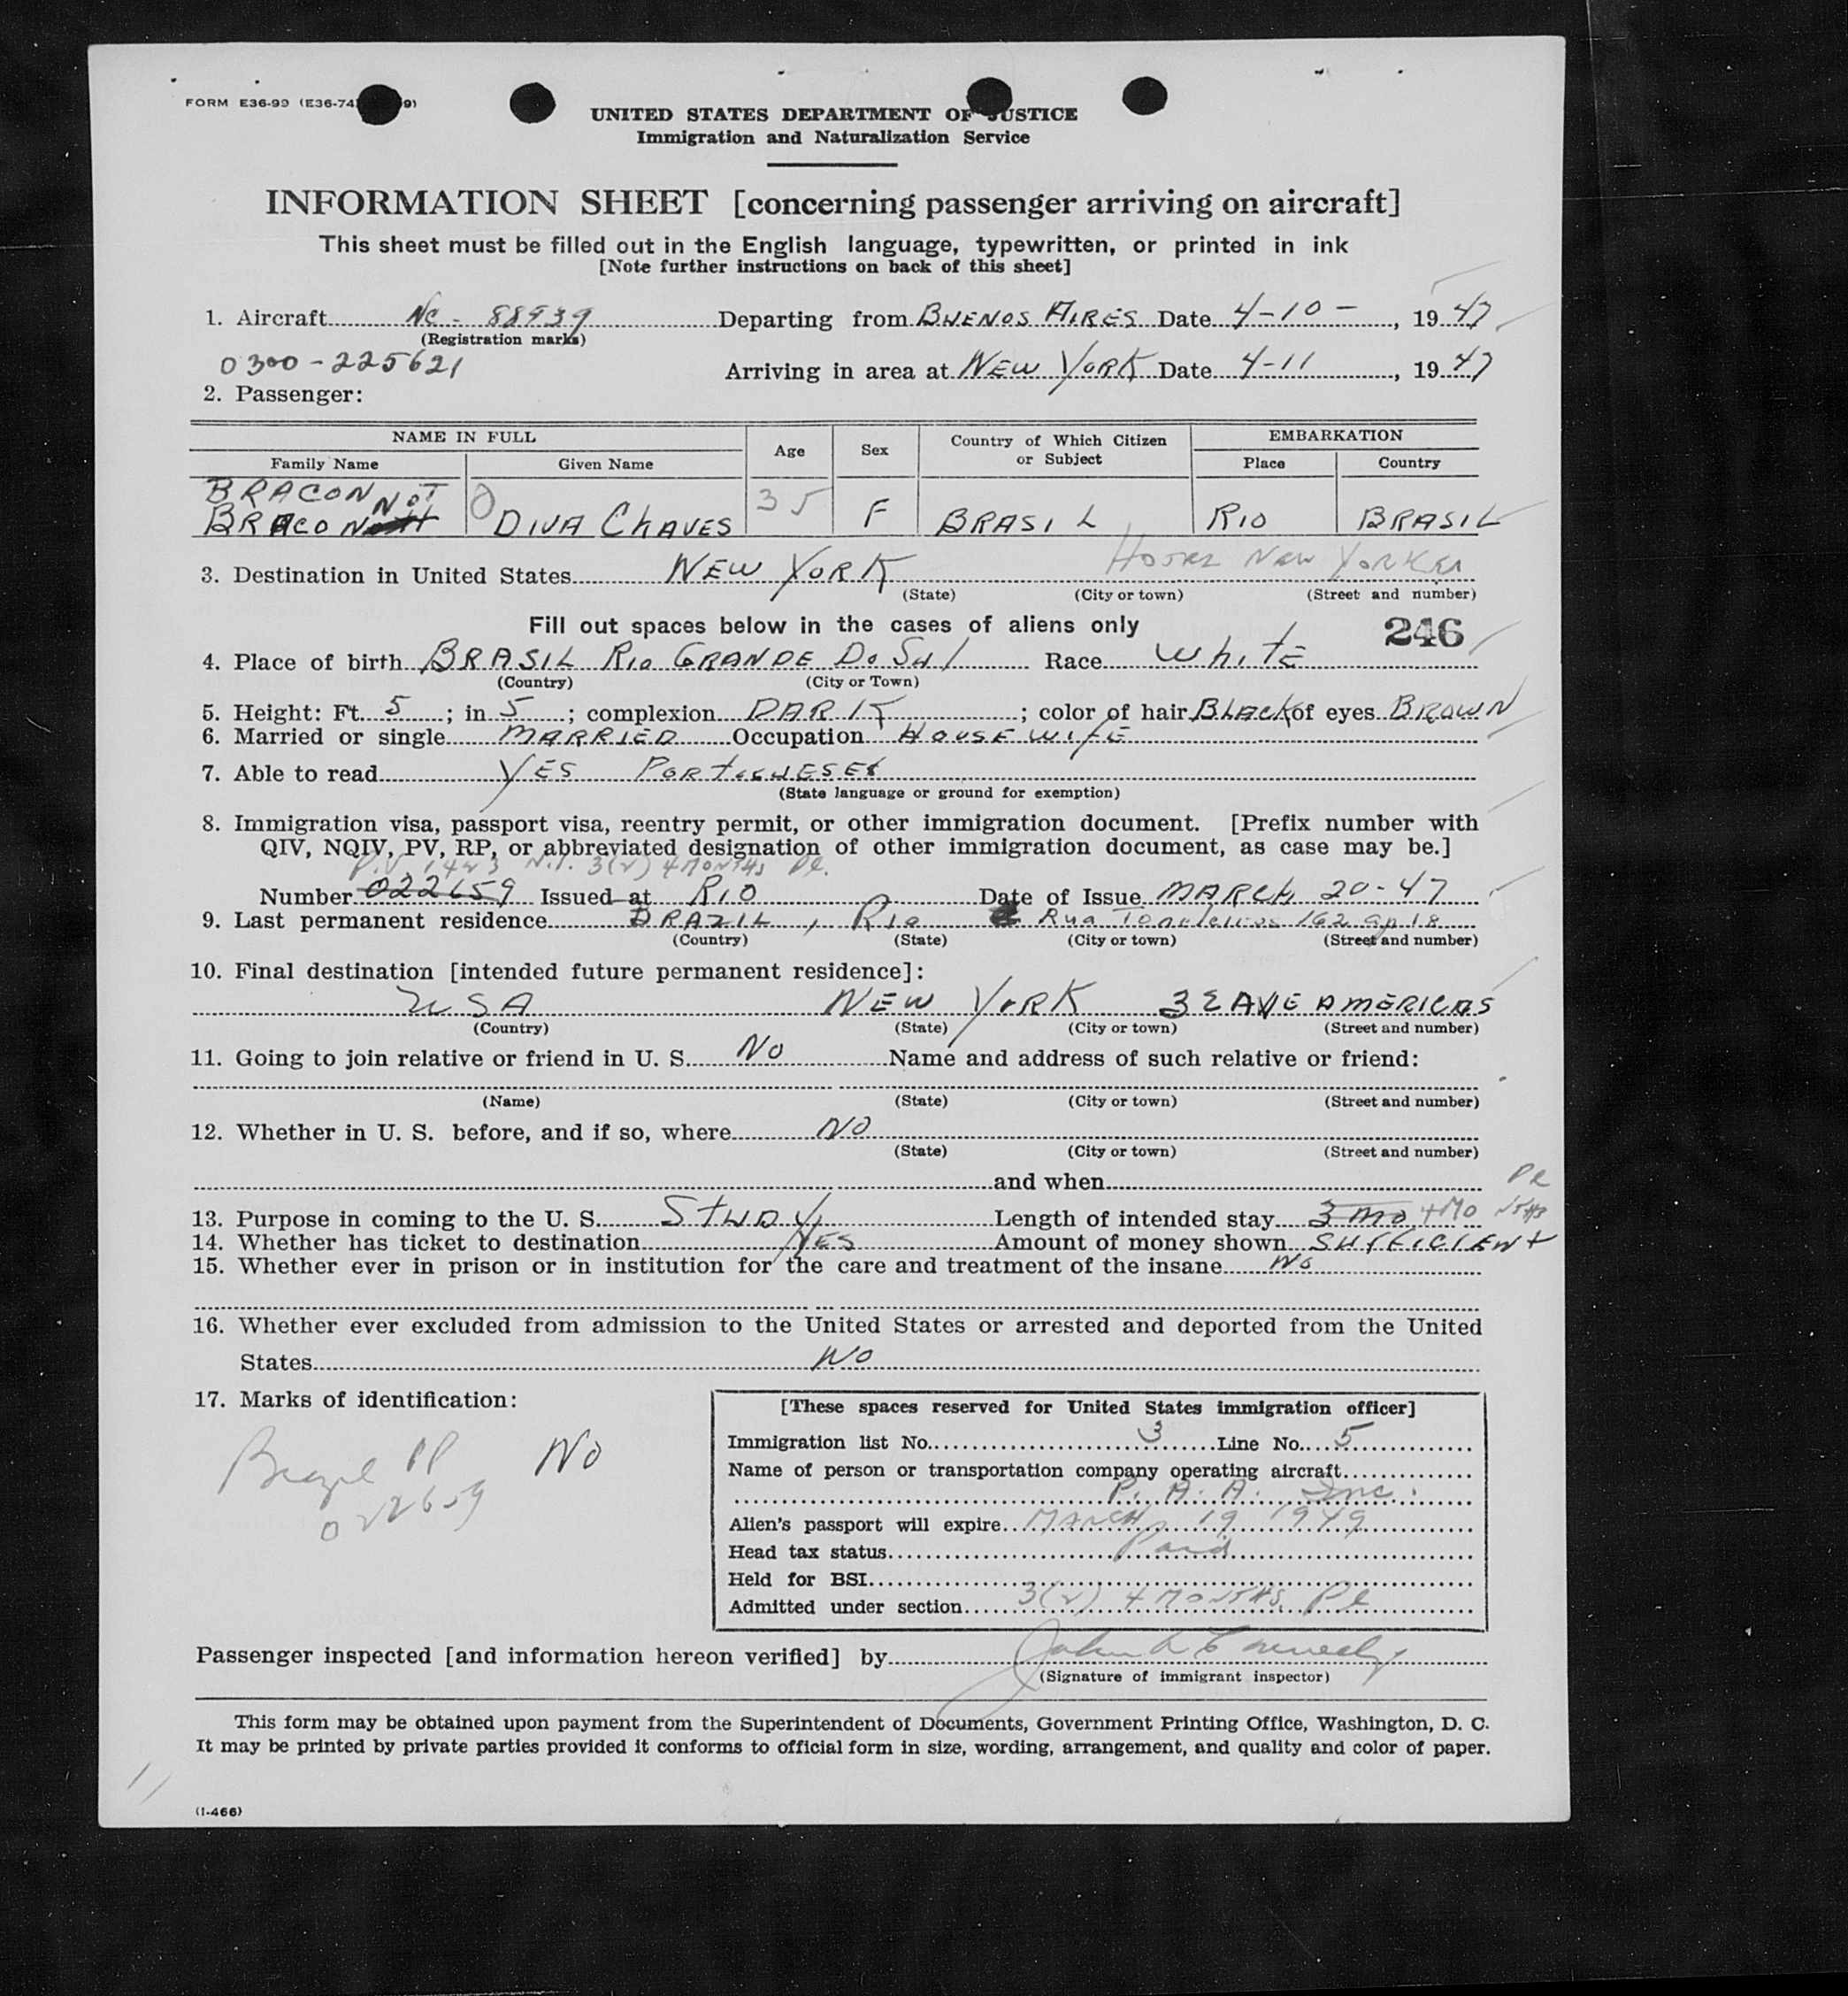 FORM E36-99 (E36-74 9)
UNITED STATES DEPARTMENT OF JUSTICE
Immigration and Naturalization Service
INFORMATION SHEET [concerning passenger arriving on aircraft]
This sheet must be filled out in the English language, typewritten, or printed in ink
[Note further instructions on back of this sheet]
1. Aircraft NC - 88939 Departing from BUENOS AIRES Date 4-10- , 19 47
(Registration marks)
0300-225621 Arriving in area at NEW YORK Date 4-11 , 19 47
2. Passenger:
NAME IN FULL Age Sex Country of Which Citizen or Subject EMBARKATION
Family Name Given Name Place Country
BRACONNOT
BRACON DIVA CHAVES 35 F BRASIL RIO BRASIL
3. Destination in United States NEW YORK HOTEL NEW YORKER
(State) (City or town) (Street and number)
Fill out spaces below in the cases of aliens only 246
4. Place of birth BRASIL RIO GRANDE DO SUL Race WHITE
(Country) (City or Town)
5. Height: Ft. 5 ; in 5 ; complexion DARK ; color of hair BLACK of eyes BROWN
6. Married or single MARRIED Occupation HOUSEWIFE
7. Able to read YES PORTUGUESES
(State language or ground for exemption)
8. Immigration visa, passport visa, reentry permit, or other immigration document. [Prefix number with
QIV, NQIV, PV, RP, or abbreviated designation of other immigration document, as case may be.]
P.V. 1423 3(2) 4 MONTHS
Number 022659 Issued at RIO Date of Issue MARCH 20-47
9. Last permanent residence BRAZIL, Rio Rua 162 ap 18
(Country) (State) (City or town) (Street and number)
10. Final destination [intended future permanent residence]:
USA NEW YORK AVE AMERICAS
(Country) (State) (City or town) (Street and number)
11. Going to join relative or friend in U. S. NO Name and address of such relative or friend:
(Name) (State) (City or town) (Street and number)
12. Whether in U. S. before, and if so, where NO
(State) (City or town) (Street and number)
and when
13. Purpose in coming to the U. S. STUDY Length of intended stay 3 mo 4 MONTHS
14. Whether has ticket to destination YES Amount of money shown SUFFICIENT
15. Whether ever in prison or in institution for the care and treatment of the insane NO
16. Whether ever excluded from admission to the United States or arrested and deported from the United
States NO
17. Marks of identification:
Brazil PP NO
022659
[These spaces reserved for United States immigration officer]
Immigration list No. 3 Line No. 5
Name of person or transportation company operating aircraft
P. A. A. Inc.
Alien's passport will expire MARCH 19 1949
Head tax status Paid
Held for BSI
Admitted under section 3(2) 4 MONTHS
Passenger inspected [and information hereon verified] by John
(Signature of immigrant inspector)
This form may be obtained upon payment from the Superintendent of Documents, Government Printing Office, Washington, D. C.
It may be printed by private parties provided it conforms to official form in size, wording, arrangement, and quality and color of paper.
(I-466)